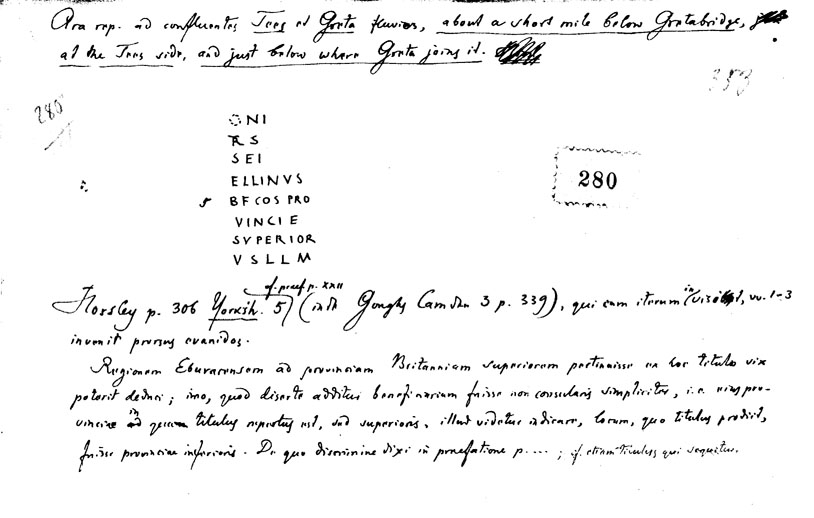 Ara rep. ad confluentes Tees et Greta fluvios, about a short mile below Gretabridge,
at the Tees side, and just below where Greta joins it.
353
280
ONI
RS
SEI
ELLINVS
280
5 BF COS PRO
VINCIE
SVPERIOR
VSLLM
cf. praef. p. XXII
Horsley p. 306 Yorksh. 5 (inde Goughs Camden 3 p. 339), qui cum iterum inviseret, vv. 1-3
invenit prorsus evanidos.
Regionem Eburacensem ad provinciam Britanniam superiorem pertinuisse ex hoc titulo vix
poterit deduci; imo, quod diserte additur beneficiarium fuisse non consularis simpliciter, i.e. eius pro-
vinciae in qua titulus repertus est, sed superioris, illud videtur indicare, locum, quo titulus prodiit,
fuisse provinciae inferioris. De quo discrimine dixi in praefatione p....; cf. etiam titulus qui sequitur.